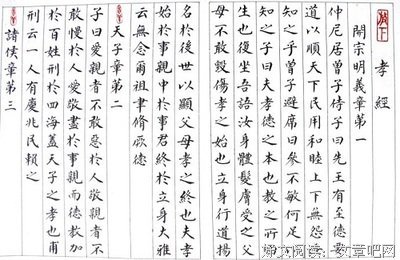 孝經
開宗明義章第一
仲尼居曾子侍子曰先王有至德要
道以順天下民用和睦上下無怨汝
知之乎曾子避席曰參不敏何足以
知之子曰夫孝德之本也教之所由
生也復坐吾語汝身體髮膚受之父
母不敢毀傷孝之始也立身行道揚
名於後世以顯父母孝之終也夫孝
始於事親中於事君終於立身大雅
云無念爾祖聿脩厥德
天子章第二
子曰愛親者不敢惡於人敬親者不
敢慢於人愛敬盡於事親而德教加
於百姓刑於四海蓋天子之孝也甫
刑云一人有慶兆民賴之
諸侯章第三
文阅读：文章吧网